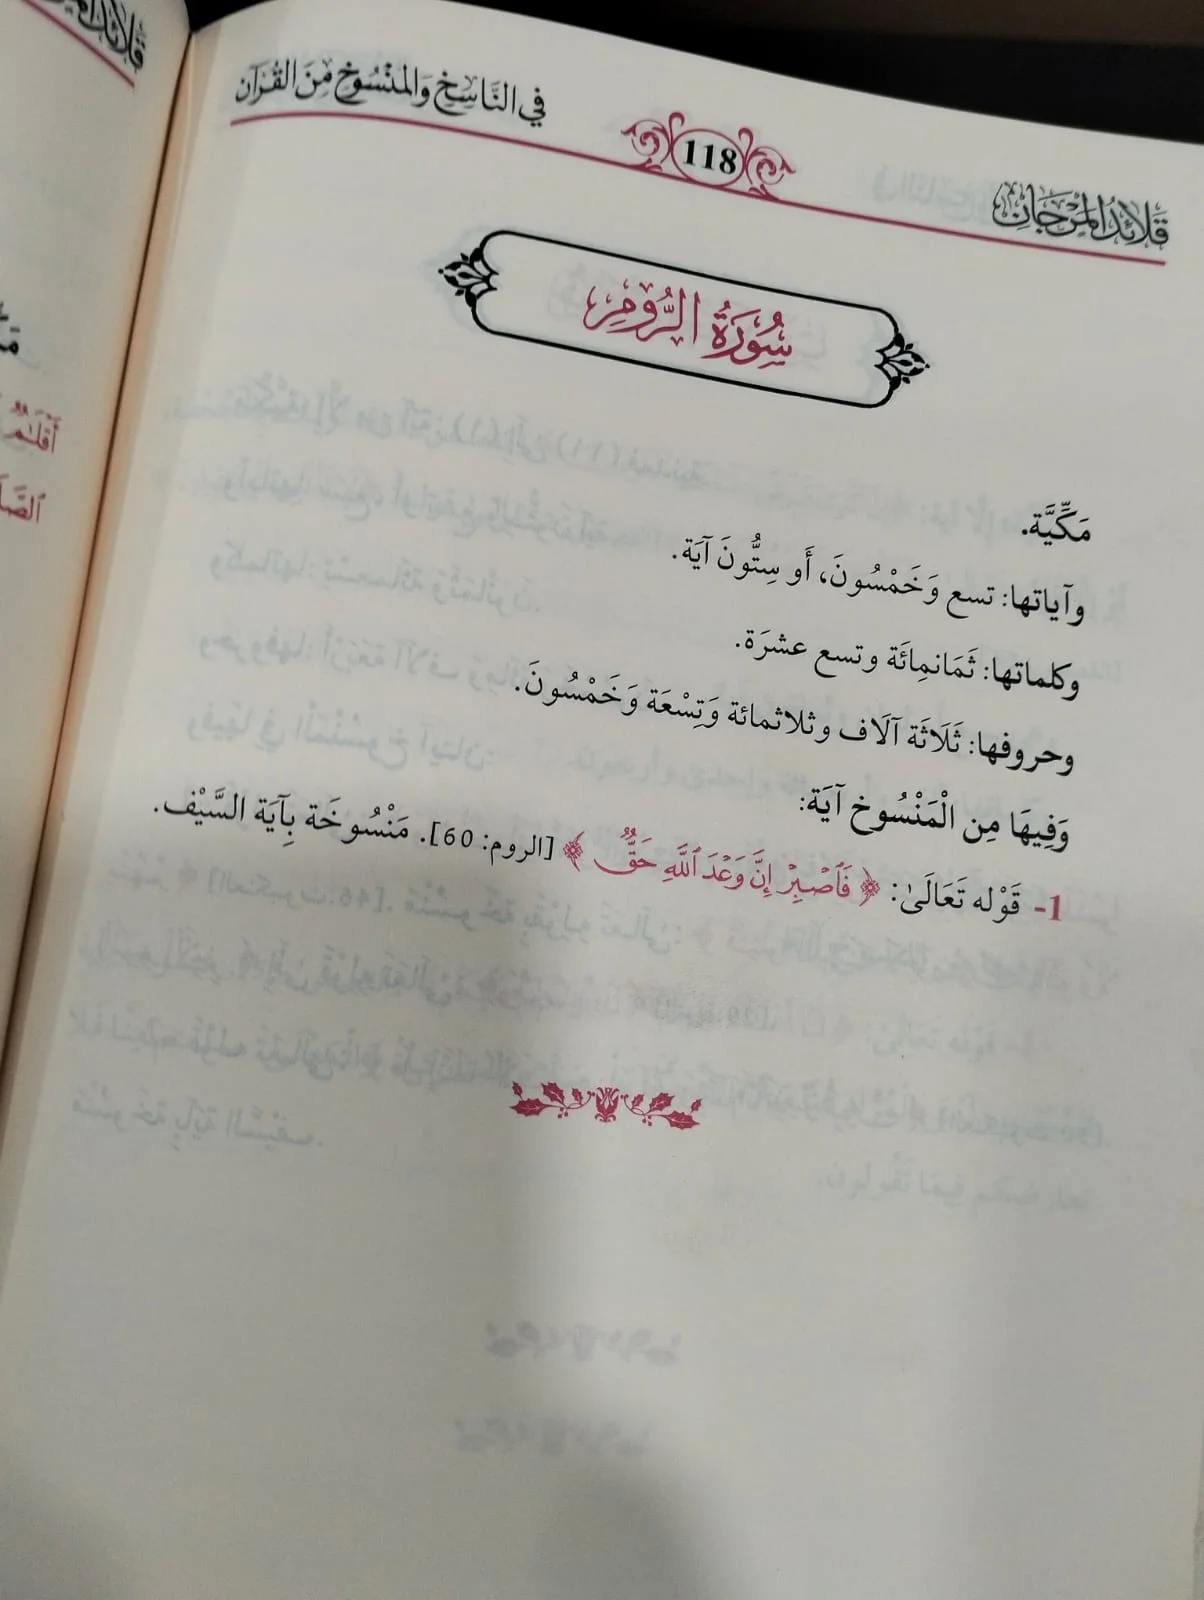 قلائد المرجان
118
في النَّاسِخِ وَالمَنْسُوخِ مِنَ القُرْآن
سُورَةُ الرُّومِ
مَكِّيَّة.
وآياتها: تسع وَخَمْسُونَ، أَو سِتُّونَ آيَة.
وكلماتها: ثَمَانمِائَة وتسع عشرَة.
وحروفها: ثَلَاثَة آلَاف وثلاثمائة وَتِسْعَة وَخَمْسُونَ.
وَفِيهَا مِن الْمَنْسُوخ آيَة:
1- قَوْله تَعَالَىٰ: ﴿ فَٱصْبِرْ إِنَّ وَعْدَ ٱللَّهِ حَقٌّ ﴾ [الروم: 60]. مَنْسُوخَة بِآيَة السَّيْف.